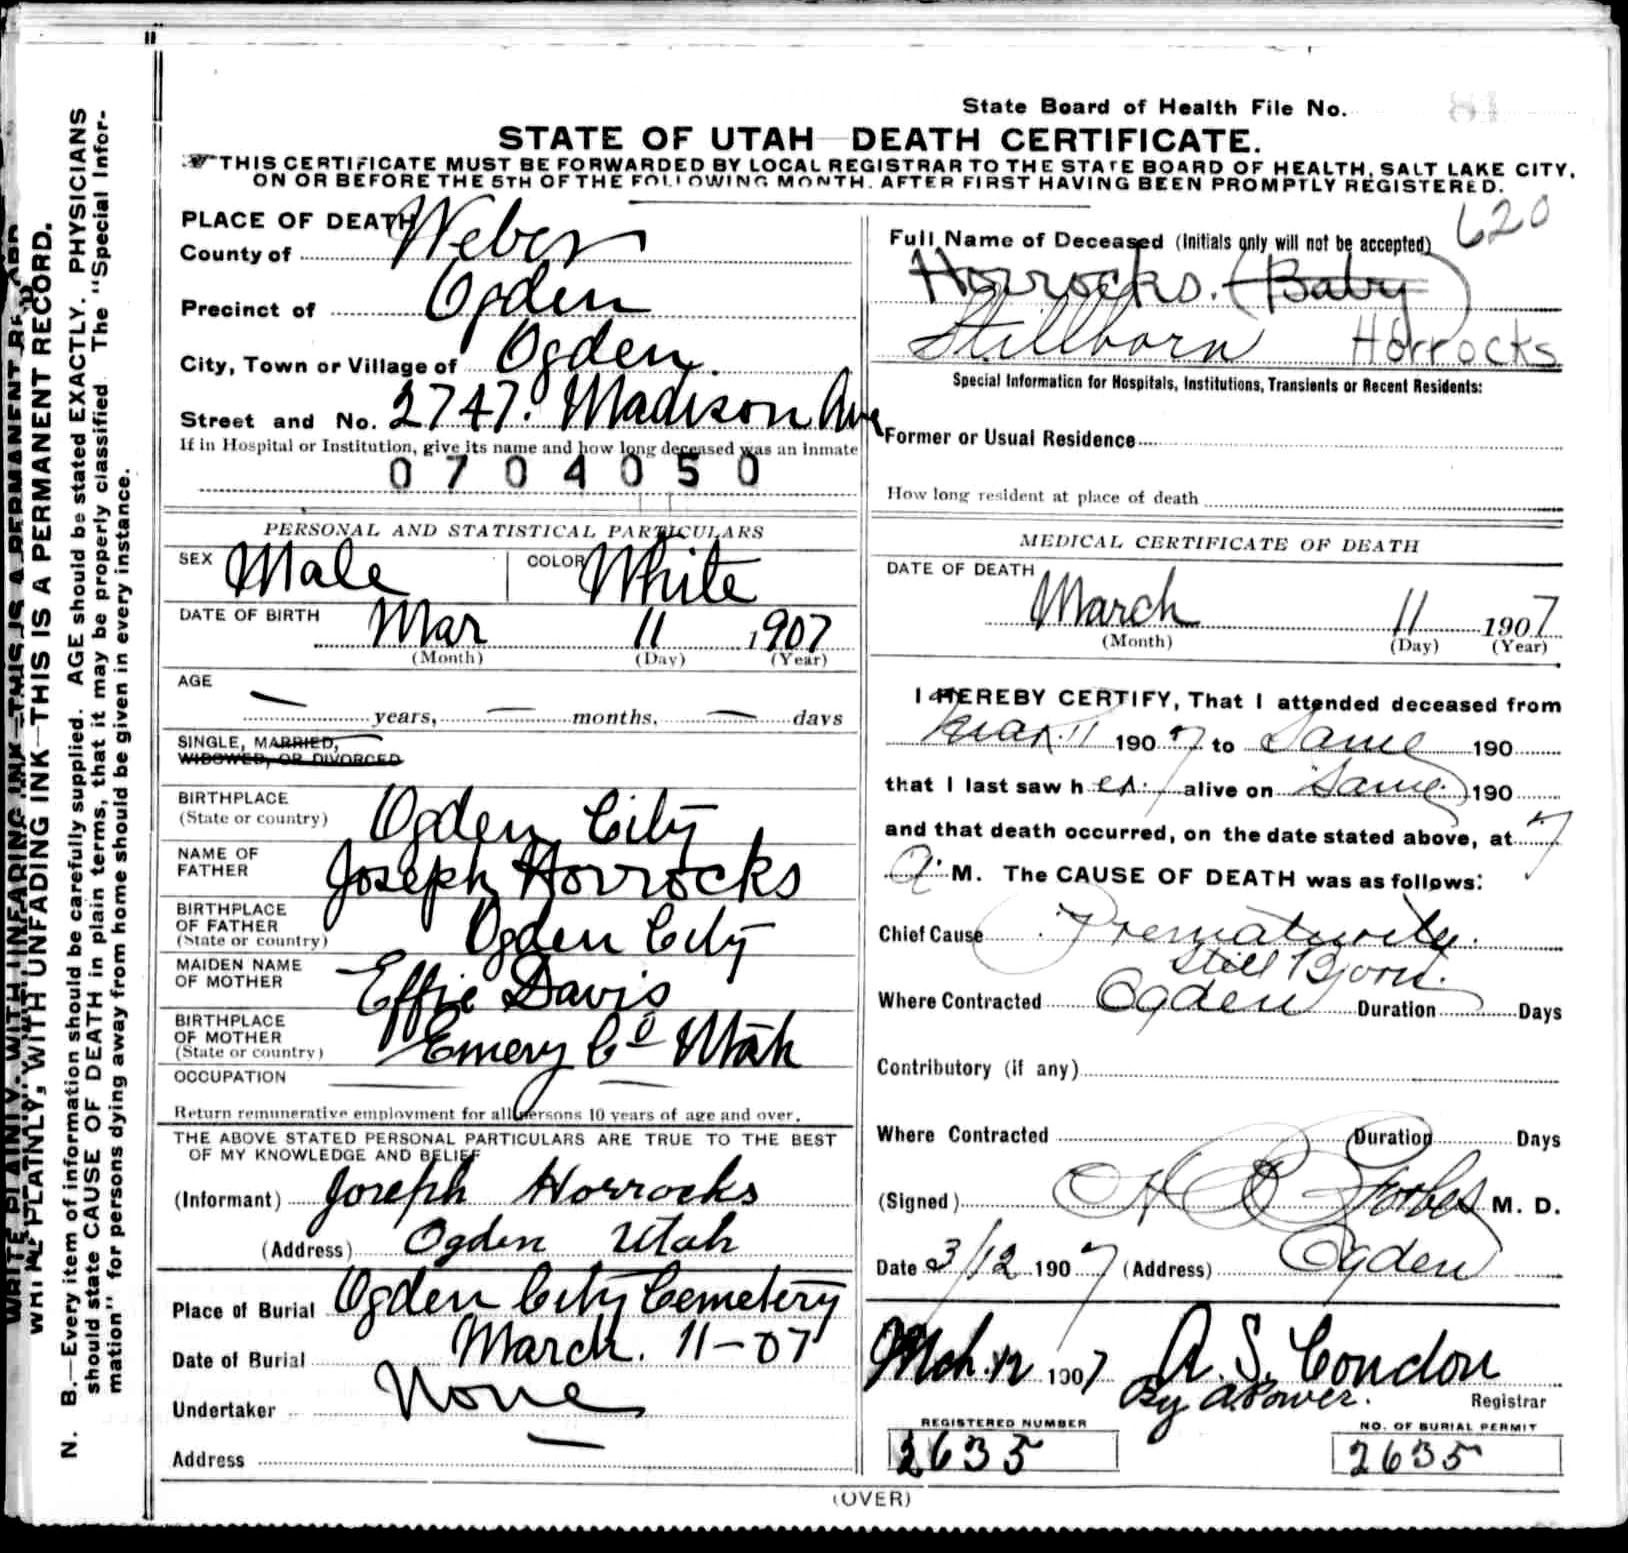 State Board of Health File No. 81
STATE OF UTAH—DEATH CERTIFICATE.
THIS CERTIFICATE MUST BE FORWARDED BY LOCAL REGISTRAR TO THE STATE BOARD OF HEALTH, SALT LAKE CITY,
ON OR BEFORE THE 5TH OF THE FOLLOWING MONTH. AFTER FIRST HAVING BEEN PROMPTLY REGISTERED.
WRITE PLAINLY, WITH UNFADING INK—THIS IS A PERMANENT RECORD.
N. B.—Every item of information should be carefully supplied. AGE should be stated EXACTLY. PHYSICIANS
should state CAUSE OF DEATH in plain terms, that it may be properly classified The "Special Infor-
mation" for persons dying away from home should be given in every instance.
PLACE OF DEATH
County of Weber
Precinct of Ogden
City, Town or Village of Ogden.
Street and No. 2747. Madison Ave
If in Hospital or Institution, give its name and how long deceased was an inmate
0704050
PERSONAL AND STATISTICAL PARTICULARS
SEX Male COLOR White
DATE OF BIRTH Mar 11 1907
(Month) (Day) (Year)
AGE
— years, — months, — days
SINGLE, MARRIED,
WIDOWED, OR DIVORCED
BIRTHPLACE
(State or country) Ogden City
NAME OF
FATHER Joseph Horrocks
BIRTHPLACE
OF FATHER
(State or country) Ogden City
MAIDEN NAME
OF MOTHER Effie Davis
BIRTHPLACE
OF MOTHER
(State or country) Emery Co Utah
OCCUPATION — —
Return remunerative employment for all persons 10 years of age and over.
THE ABOVE STATED PERSONAL PARTICULARS ARE TRUE TO THE BEST
OF MY KNOWLEDGE AND BELIEF
(Informant) Joseph Horrocks
(Address) Ogden Utah
Place of Burial Ogden City Cemetery
Date of Burial March. 11-07
Undertaker None
Address —
620
Full Name of Deceased (Initials only will not be accepted)
Horrocks. (Baby)
Stillborn Horrocks
Special Information for Hospitals, Institutions, Transients or Recent Residents:
Former or Usual Residence
How long resident at place of death
MEDICAL CERTIFICATE OF DEATH
DATE OF DEATH
March 11 1907
(Month) (Day) (Year)
I HEREBY CERTIFY, That I attended deceased from
Mar. 11 1907 to Same 190
that I last saw h er alive on Same 190
and that death occurred, on the date stated above, at 7
a. M. The CAUSE OF DEATH was as follows:
Chief Cause Prematurity.
Still Born.
Where Contracted Ogden Duration Days
Contributory (if any)
Where Contracted Duration Days
(Signed) H B Forbes M. D.
Date 3/12 1907 (Address) Ogden
Mch. 12 1907 A. S. Condon
By A Power. Registrar
REGISTERED NUMBER NO. OF BURIAL PERMIT
2635 2635
(OVER)